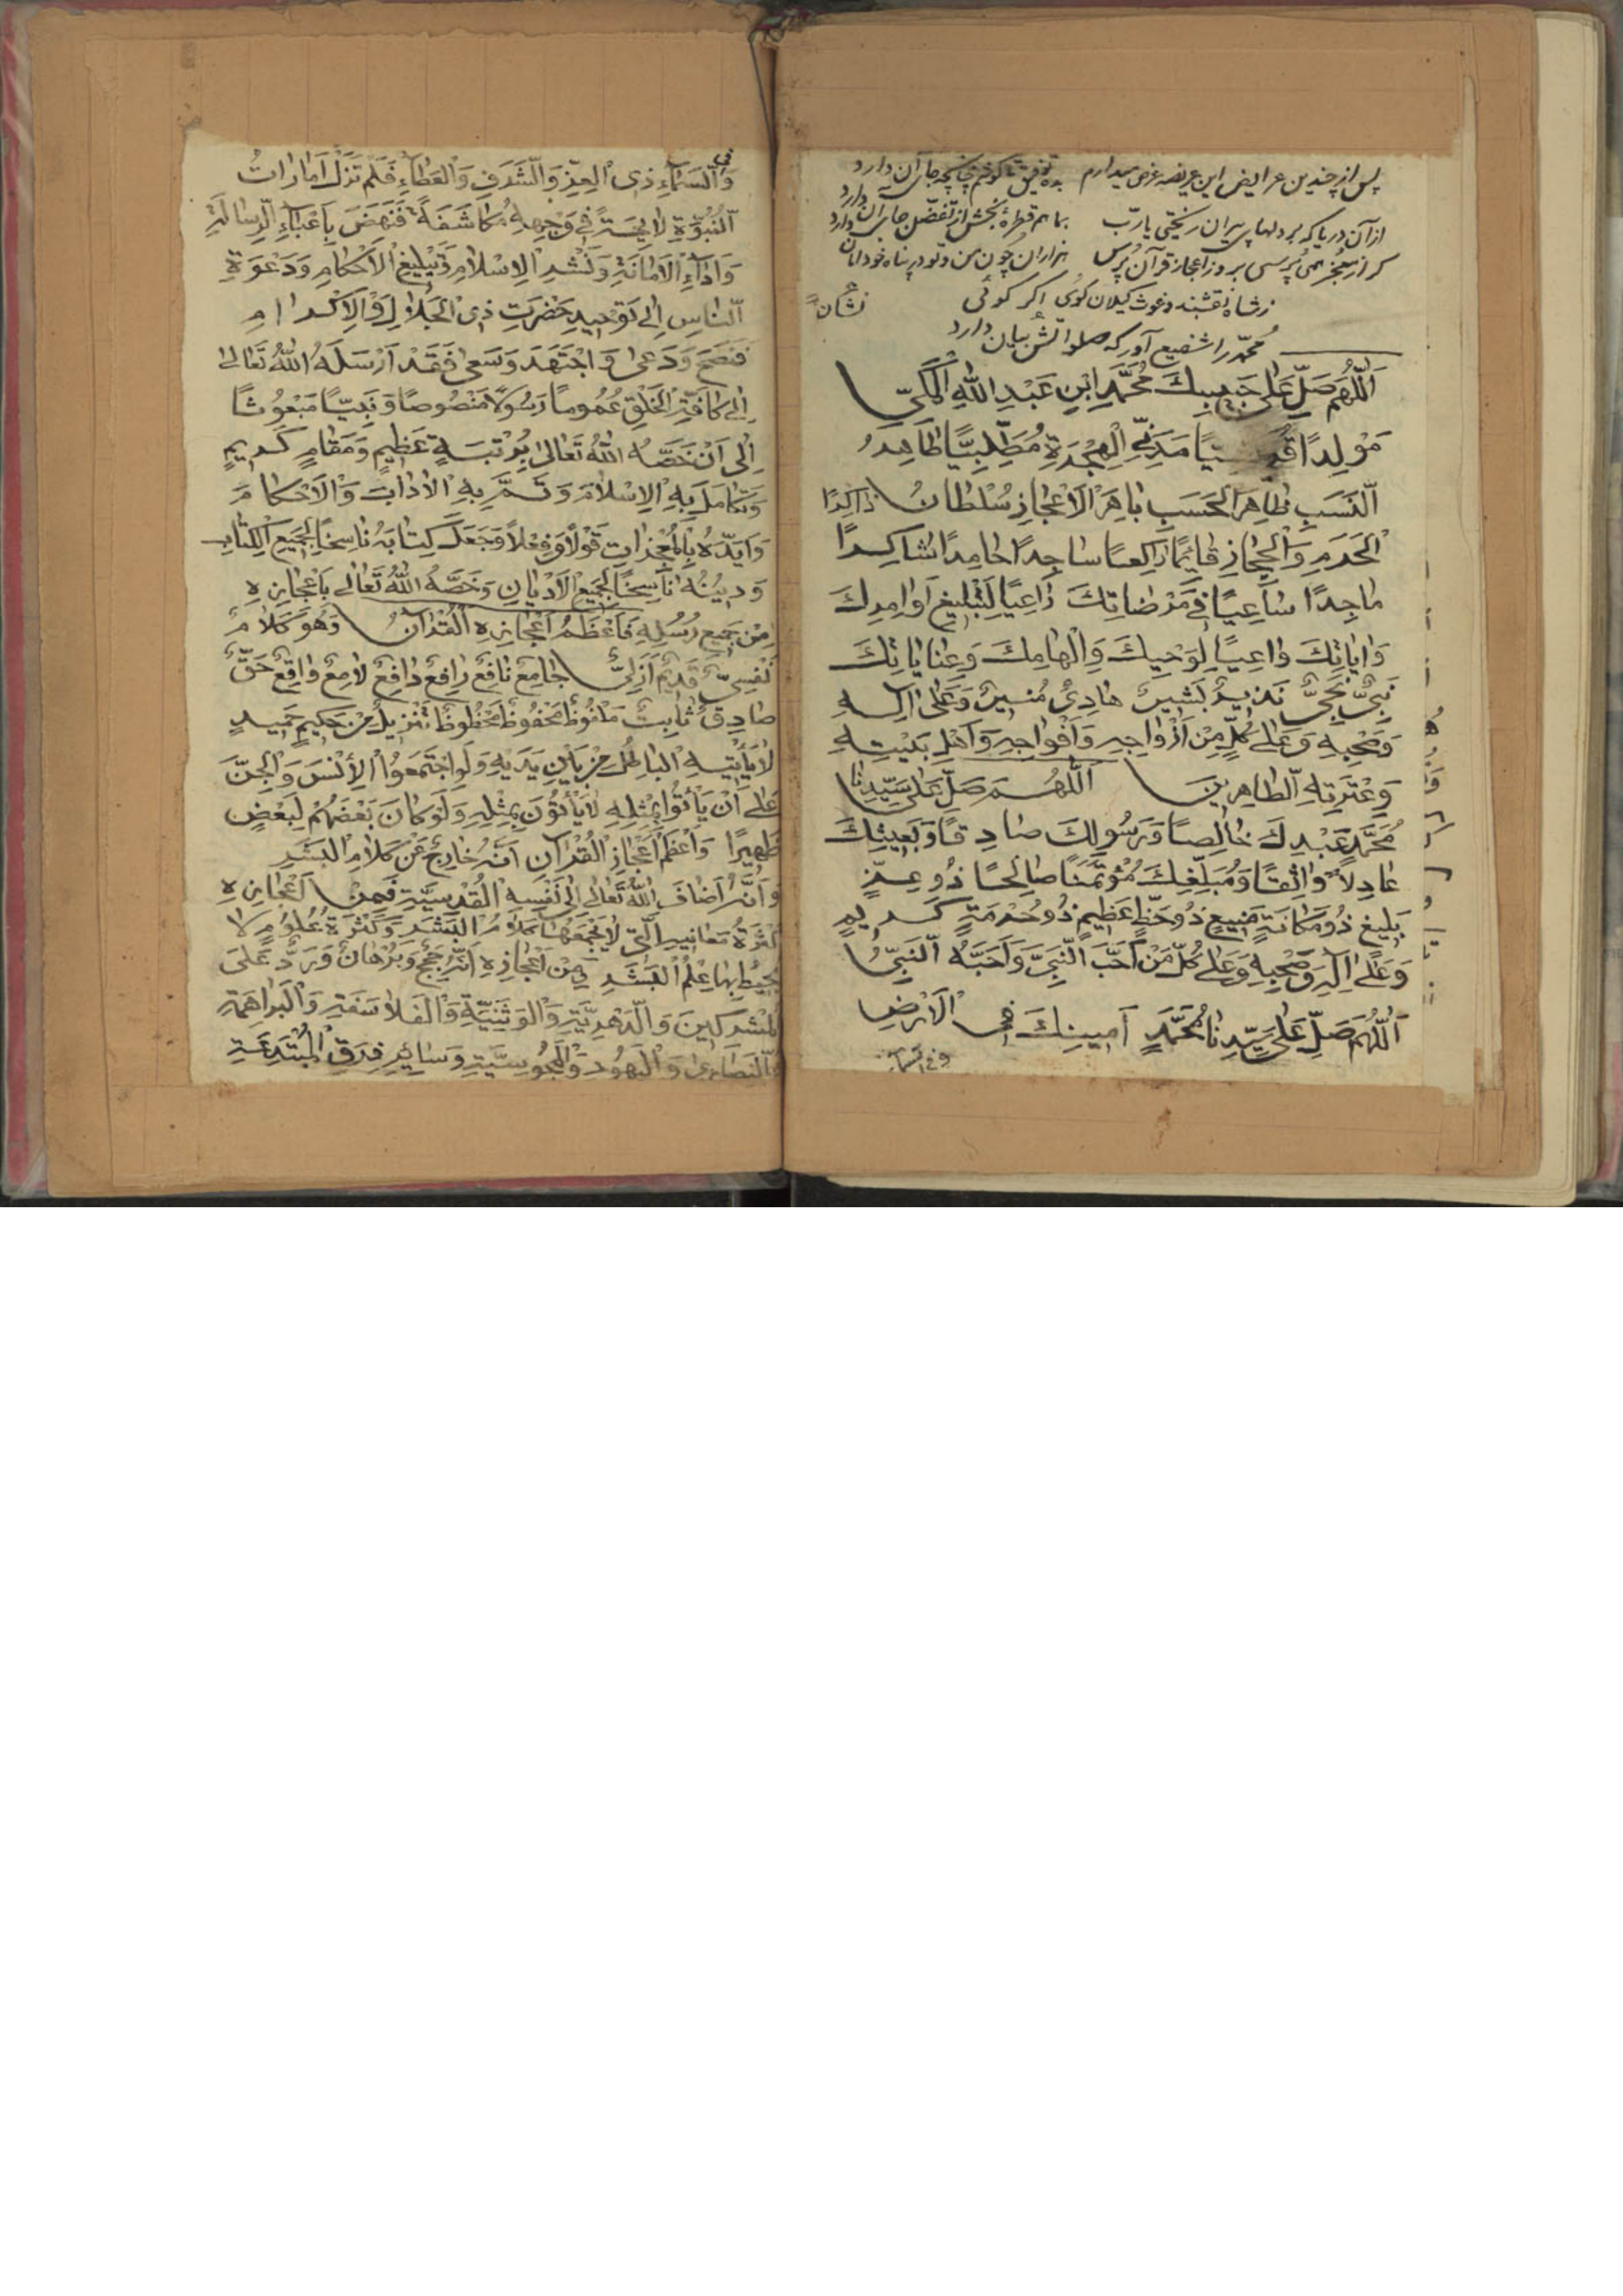 پس از چندین عرایض این عریضه عرض میدارم بده توفیق تا گویم چنانچه جای آن دارد
از آن دریا که بر دلهای پیران ریختی یا رب بما هم قطرهٔ بخش از تفضّل جای آن دارد
گر از معجز همی پرسی بروز اعجاز قرآن پرس هزاران چون من و تو در پناه خود امان دارد
ز شاه نقشبند و غوث کیلان کوی اکر کوئی نشان
محمّد را شفیع آور که صلواتش بیان دارد
اَللّٰهُمَّ صَلِّ عَلٰی حَبِیبِكَ مُحَمَّدِ ابْنِ عَبْدِ اللّٰهِ الْمَكِّیِّ
مَوْلِدًا مَدَنِیِّ الْهِجْرَةِ مُطَّلِبِیًّا طَاهِرُ
النَّسَبِ ظَاهِرَ الْحَسَبِ بَاهِرَ الْاَعْجَازِ سُلْطَانُ ذَاكِرًا
الْحَرَمِ وَالْحِجَازِ قَائِمًا رَاكِعًا سَاجِدًا حَامِدًا شَاكِرًا
مَاجِدًا سَاعِیًا فِی مَرْضَاتِكَ دَاعِیًا لِتَبْلِیغِ اَوَامِرِكَ
وَاٰیَاتِكَ وَاعِیًا لِوَحْیِكَ وَاِلْهَامِكَ وَعِنَایَاتِكَ
نَبِیٌّ نَجِیٌّ نَذِیرٌ بَشِیرٌ هَادِیٌ مُنِیرٌ وَعَلٰی اٰلِهِ
وَصَحْبِهِ وَعَلٰی كُلٍّ مِنْ اَزْوَاجِهِ وَاَفْوَاجِهِ وَاَهْلِ بَیْتِهِ
وَعِتْرَتِهِ الطَّاهِرِینَ اَللّٰهُمَّ صَلِّ عَلٰی سَیِّدِنَا
مُحَمَّدٍ عَبْدِكَ خَالِصًا وَرَسُولِكَ صَادِقًا وَبَعِیثِكَ
عَادِلًا وَاثِقًا وَمُبَلِّغِكَ مُؤْتَمَنًا صَالِحًا ذُو عِزٍّ
بَلِیغٍ ذُو مَكَانَةٍ مَنِیعٍ ذُو حَظٍّ عَظِیمٍ ذُو حُرْمَةٍ كَرِیمٍ
وَعَلٰی اٰلِهِ وَصَحْبِهِ وَعَلٰی كُلِّ مَنْ اَحَبَّ النَّبِیَّ وَاَحَبَّهُ النَّبِیُّ
اَللّٰهُمَّ صَلِّ عَلٰی سَیِّدِنَا مُحَمَّدٍ اَمِینِكَ فِی الْاَرْضِ
و فی السماء
وَفِی السَّمَاءِ ذِی الْعِزِّ وَالشَّرَفِ وَالْعَطَاءِ فَلَمْ تَزَلْ اَمَارَاتُ
النُّبُوَّةِ لَایِحَةً فِی وَجْهِهِ مُكَاشَفَةً فَنَهَضَ بِاَعْبَاءِ الرِّسَالَةِ
وَاَدَاءِ الْاَمَانَةِ وَنَشْرِ الْاِسْلَامِ وَتَبْلِیغِ الْاَحْكَامِ وَدَعْوَةِ
النَّاسِ اِلٰی تَوْحِیدِ حَضْرَتِ ذِی الْجَلَالِ وَالْاِكْرَامِ
فَنَصَحَ وَدَعٰی وَاجْتَهَدَ وَسَعٰی فَقَدْ اَرْسَلَهُ اللّٰهُ تَعَالٰی
اِلٰی كَافَّةِ الْخَلْقِ عُمُومًا رَسُولًا مَنْصُوصًا وَنَبِیًّا مَبْعُوثًا
اِلٰی اَنْ خَصَّهُ اللّٰهُ تَعَالٰی بِرُتْبَةٍ عَظِیمٍ وَمَقَامٍ كَرِیمٍ
وَتَكَامَلَ بِهِ الْاِسْلَامَ وَتَمَّ بِهِ الْاٰدَابَ وَالْاَحْكَامَ
وَاَیَّدَهُ بِالْمُعْجِزَاتِ قَوْلًا وَفِعْلًا وَجَعَلَ كِتَابَهُ نَاسِخًا لِجَمِیعِ الْكِتَابِ
وَدِینُهُ نَاسِخًا لِجَمِیعِ الْاَدْیَانِ وَخَصَّهُ اللّٰهُ تَعَالٰی بِاَعْجَازِهِ
مِنْ جَمِیعِ رُسُلِهِ فَاَعْظَمُ اَعْجَازِهِ الْقُرْاٰنُ وَهُوَ كَلَامٌ
نَفْسِیٌّ قَدِیمٌ اَزَلِیٌّ جَامِعٌ نَافِعٌ رَافِعٌ دَافِعٌ لَامِعٌ وَاقِعٌ حَقٌّ
صَادِقٌ ثَابِتٌ مَلْفُوظٌ مَحْفُوظٌ مَحْظُوظٌ تَنْزِیلٌ مِنْ حَكِیمٍ حَمِیدٍ
لَا یَأْتِیهِ الْبَاطِلُ مِنْ بَیْنِ یَدَیْهِ وَلَوِ اجْتَمَعُوا الْاِنْسَ وَالْجِنَّ
عَلٰی اَنْ یَأْتُوا بِمِثْلِهِ لَا یَأْتُونَ بِمِثْلِهِ وَلَوْ كَانَ بَعْضُهُمْ لِبَعْضٍ
ظَهِیرًا وَاَعْظَمُ اَعْجَازِ الْقُرْاٰنِ اَنَّهُ خَارِجٌ عَنْ كَلَامِ الْبَشَرِ
وَاَنَّهُ اَضَافَ اللّٰهُ تَعَالٰی اِلٰی نَفْسِهِ الْقُدْسِیَّةِ فَمِنْ اَعْجَازِهِ
كَثْرَةُ مَعَانِیهِ الَّتِی لَا یَجْمَعُهَا كَلَامُ الْبَشَرِ وَكَثْرَةُ عُلُومٍ لَا
یُحِیطُ بِهَا عِلْمُ الْبَشَرِ وَمِنْ اَعْجَازِهِ اَنَّهُ حُجَجٌ وَبُرْهَانٌ وَرَدٌّ عَلَی
الْمُشْرِكِینَ وَالدَّهْرِیَّةِ وَالْوَثَنِیَّةِ وَالْفَلَاسَفَةِ وَالْبَرَاهَمَةِ
وَالنَّصَارٰی وَالْیَهُودِ وَالْمَجُوسِیَّةِ وَسَائِرِ فِرَقِ الْمُبْتَدِعَةِ